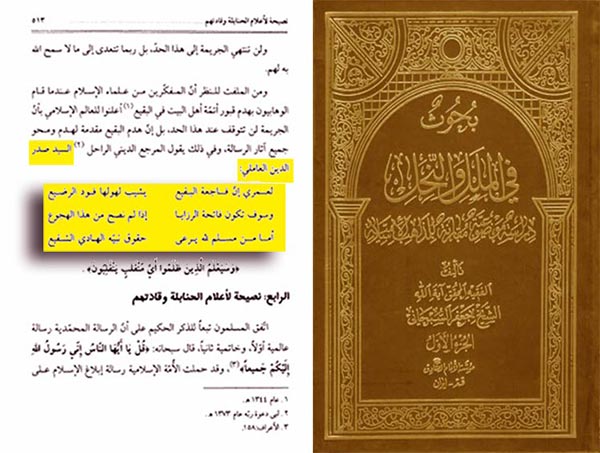 نصيحة لأعلام الحنابلة وقادتهم
٥١٣
ولن تنتهي الجريمة إلى هذا الحدّ، بل ربما تتعدى إلى ما لا سمح الله
به لهم.
ومن الملفت للنظر أنّ المفكّرين من علماء الإسلام عندما قام
الوهابيون بهدم قبور أئمّة أهل البيت في البقيع (١) أعلنوا للعالم الإسلامي بأنّ
الجريمة لن تتوقف عند هذا الحد، بل إنّ هدم البقيع مقدمة لهدم ومحو
جميع آثار الرسالة، وفي ذلك يقول المرجع الديني الراحل (٢) السيد صدر
الدين العاملي:
لعمري إنّ فاجعة البقيع يشيب لهولها فود الرضيع
وسوف تكون فاتحة الرزايا إذا لم نصح من هذا الهجوع
أما من مسلم لله يرعى حقوق نبيّه الهادي الشفيع
﴿وَسَيَعْلَمُ الَّذِينَ ظَلَمُوا أَيَّ مُنْقَلَبٍ يَنْقَلِبُونَ﴾.
الرابع: نصيحة لأعلام الحنابلة وقادتهم
اتّفق المسلمون تبعاً للذكر الحكيم على أنّ الرسالة المحمّدية رسالة
عالمية أوّلاً، وخاتمية ثانياً، قال سبحانه: ﴿قُلْ يَا أَيُّهَا النَّاسُ إِنِّي رَسُولُ اللهِ
إِلَيْكُمْ جَمِيعاً﴾ (٣)، وقد حملت الأُمّة الإسلامية رسالة إبلاغ الإسلام على
١ . عام ١٣٤٤ هـ.
٢ . لبى دعوة ربّه عام ١٣٧٣ هـ.
٣ . الأعراف: ١٥٨.
بحوث
في الملل والنحل
دراسة موضوعية مقارنة للمذاهب الإسلامية
تأليف
الفقيه المحقق آية الله
الشيخ جعفر السبحاني
الجزء الأول
مؤسسة الإمام الصادق
قم - ايران